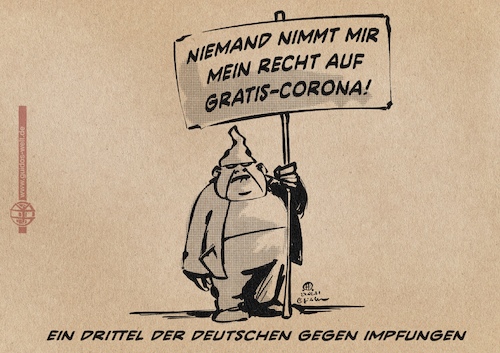 NIEMAND NIMMT MIR
MEIN RECHT AUF
GRATIS-CORONA!
www.guidos-welt.de
EIN DRITTEL DER DEUTSCHEN GEGEN IMPFUNGEN